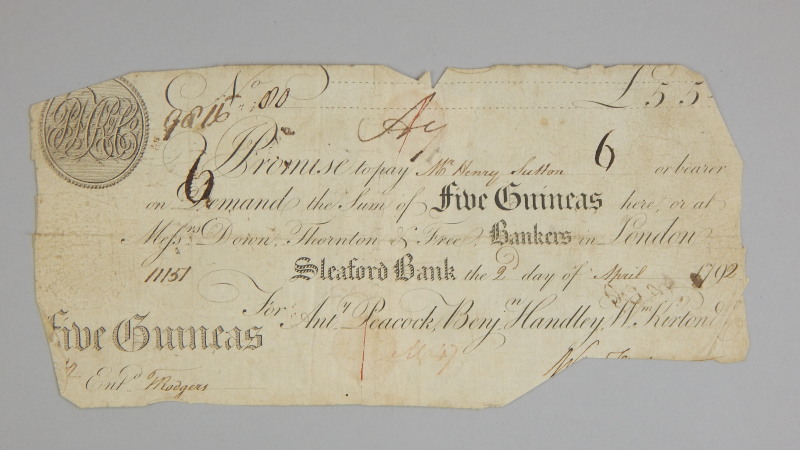 No
£5 5
6
I Promise to pay Mr. Henry Sutton 6 or bearer
on Demand the Sum of Five Guineas here, or at
Messrs Down, Thornton & Free, Bankers in London
11151 Sleaford Bank the 2d day of April 1792
For Anty Peacock, Benjn Handley, Wm Kirton
Five Guineas
Entd TRodgers